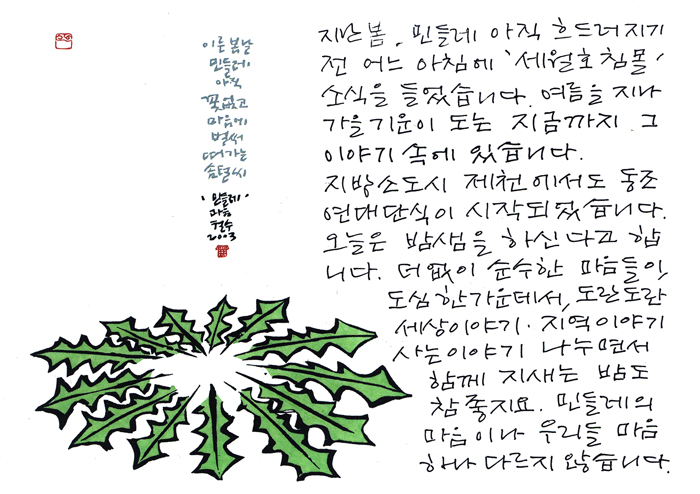 이른 봄날
민들레
아직
꽃없고
마음에
벌써
떠가는
솜털씨
'민들레
마음'
철수
2003
지난 봄, 민들레 아직 흐드러지기
전 어느 아침에 '세월호 침몰'
소식을 들었습니다. 여름을 지나
가을기운이 도는 지금까지 그
이야기 속에 있습니다.
지방소도시 제천에서도 동조
연대단식이 시작되었습니다.
오늘은 밤샘을 하신다고 합
니다. 더없이 순수한 마음들이,
도심 한가운데서, 도란도란
세상이야기·지역이야기
사는이야기 나누면서
함께 지새는 밤도
참 좋지요. 민들레의
마음이나 우리들 마음
하나 다르지 않습니다.